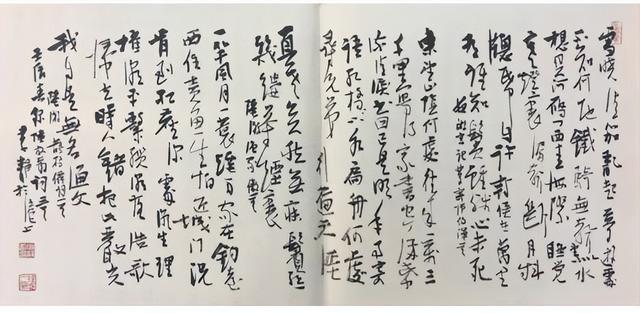 雪晓清笳乱起梦游处
不知何地铁骑无声望似水
想关河雁门西青海际睡觉
寒灯里漏声断月斜
窗纸自许封侯在万里
有谁知鬓虽残心未死
东望山阴何处是往来一万三
千里写得家书空满纸流
清泪书回已是明年事寄
语红桥桥下水扁舟何处
寻兄弟行遍天涯
真老矣愁无寐鬓丝
几缕茶烟里
一竿风月一蓑烟雨家在钓台
西住卖鱼生怕近城门况
肯到红尘深处潮生理
棹潮平系缆潮落浩歌
归去时人错把比严光
我自是无名渔父